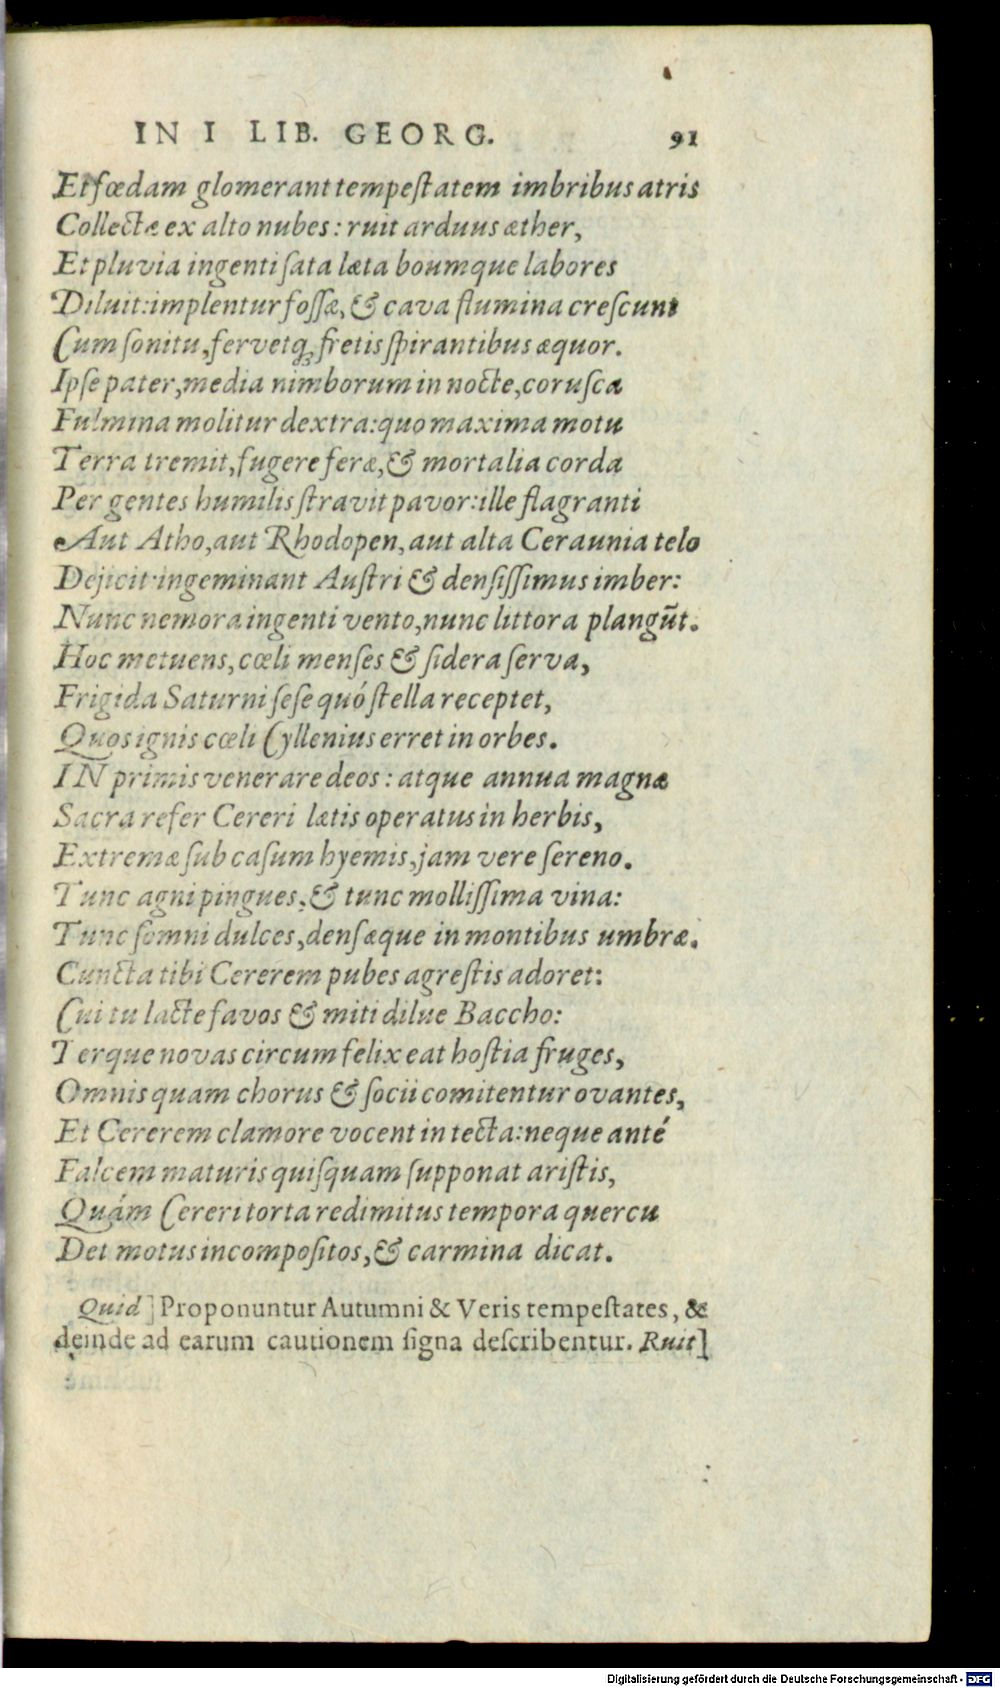 IN I LIB. GEORG. 91
Et fœdam glomerant tempeſtatem imbribus atris
Collectæ ex alto nubes: ruit arduus æther,
Et pluvia ingenti ſata læta boumque labores
Diluit: implentur foſſæ, & cava flumina creſcunt
Cum ſonitu, fervetq; fretis ſpirantibus æquor.
Ipſe pater, media nimborum in nocte, coruſca
Fulmina molitur dextra: quo maxima motu
Terra tremit, fugere feræ, & mortalia corda
Per gentes humilis ſtravit pavor: ille flagranti
Aut Atho, aut Rhodopen, aut alta Ceraunia telo
Dejicit: ingeminant Auſtri & denſiſſimus imber:
Nunc nemora ingenti vento, nunc littora plangūt.
Hoc metuens, cœli menſes & ſidera ſerva,
Frigida Saturni ſeſe quó ſtella receptet,
Quos ignis cœli Cyllenius erret in orbes.
IN primis venerare deos: atque annua magnæ
Sacra refer Cereri lætis operatus in herbis,
Extremæ ſub caſum hyemis, jam vere ſereno.
Tunc agni pingues, & tunc molliſſima vina:
Tunc ſomni dulces, denſæque in montibus umbræ.
Cuncta tibi Cererem pubes agreſtis adoret:
Cui tu lacte favos & miti dilue Baccho:
Terque novas circum felix eat hoſtia fruges,
Omnis quam chorus & ſocii comitentur ovantes,
Et Cererem clamore vocent in tecta: neque anté
Falcem maturis quiſquam ſupponat ariſtis,
Quám Cereri torta redimitus tempora quercu
Det motus incompoſitos, & carmina dicat.
Quid] Proponuntur Autumni & Veris tempeſtates, &
deinde ad earum cautionem ſigna deſcribentur. Ruit]
Digitalisierung gefördert durch die Deutsche Forschungsgemeinschaft - DFG